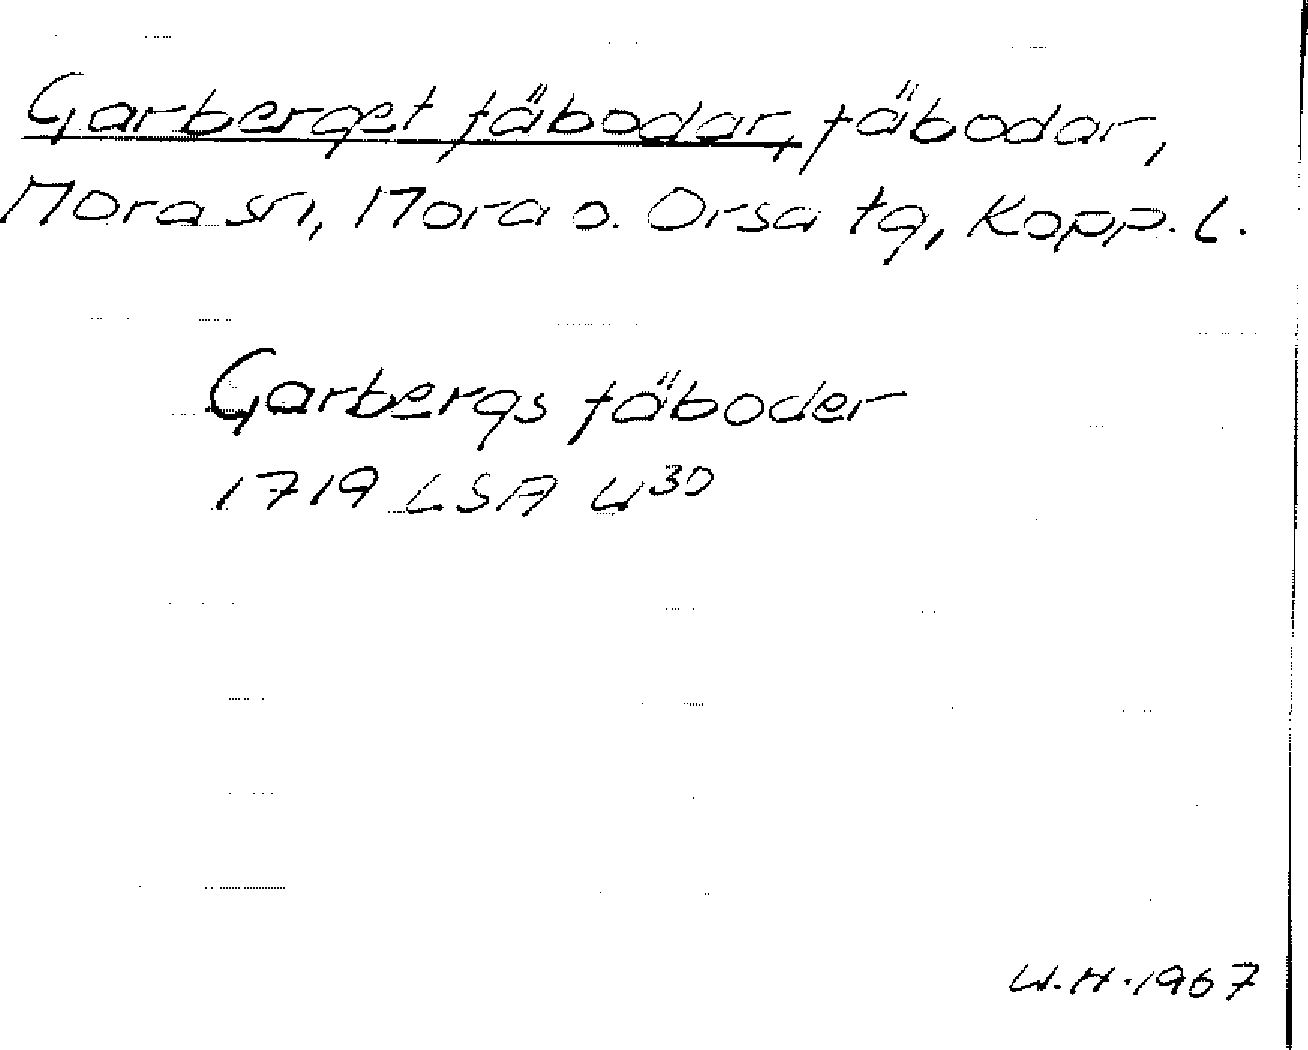 Garberget fäbodar, fäbodar,
Mora sn, Mora o. Orsa tg, Kopp. l.
Garbergs fäboder
1719 LSA W³⁰
W.H. 1967